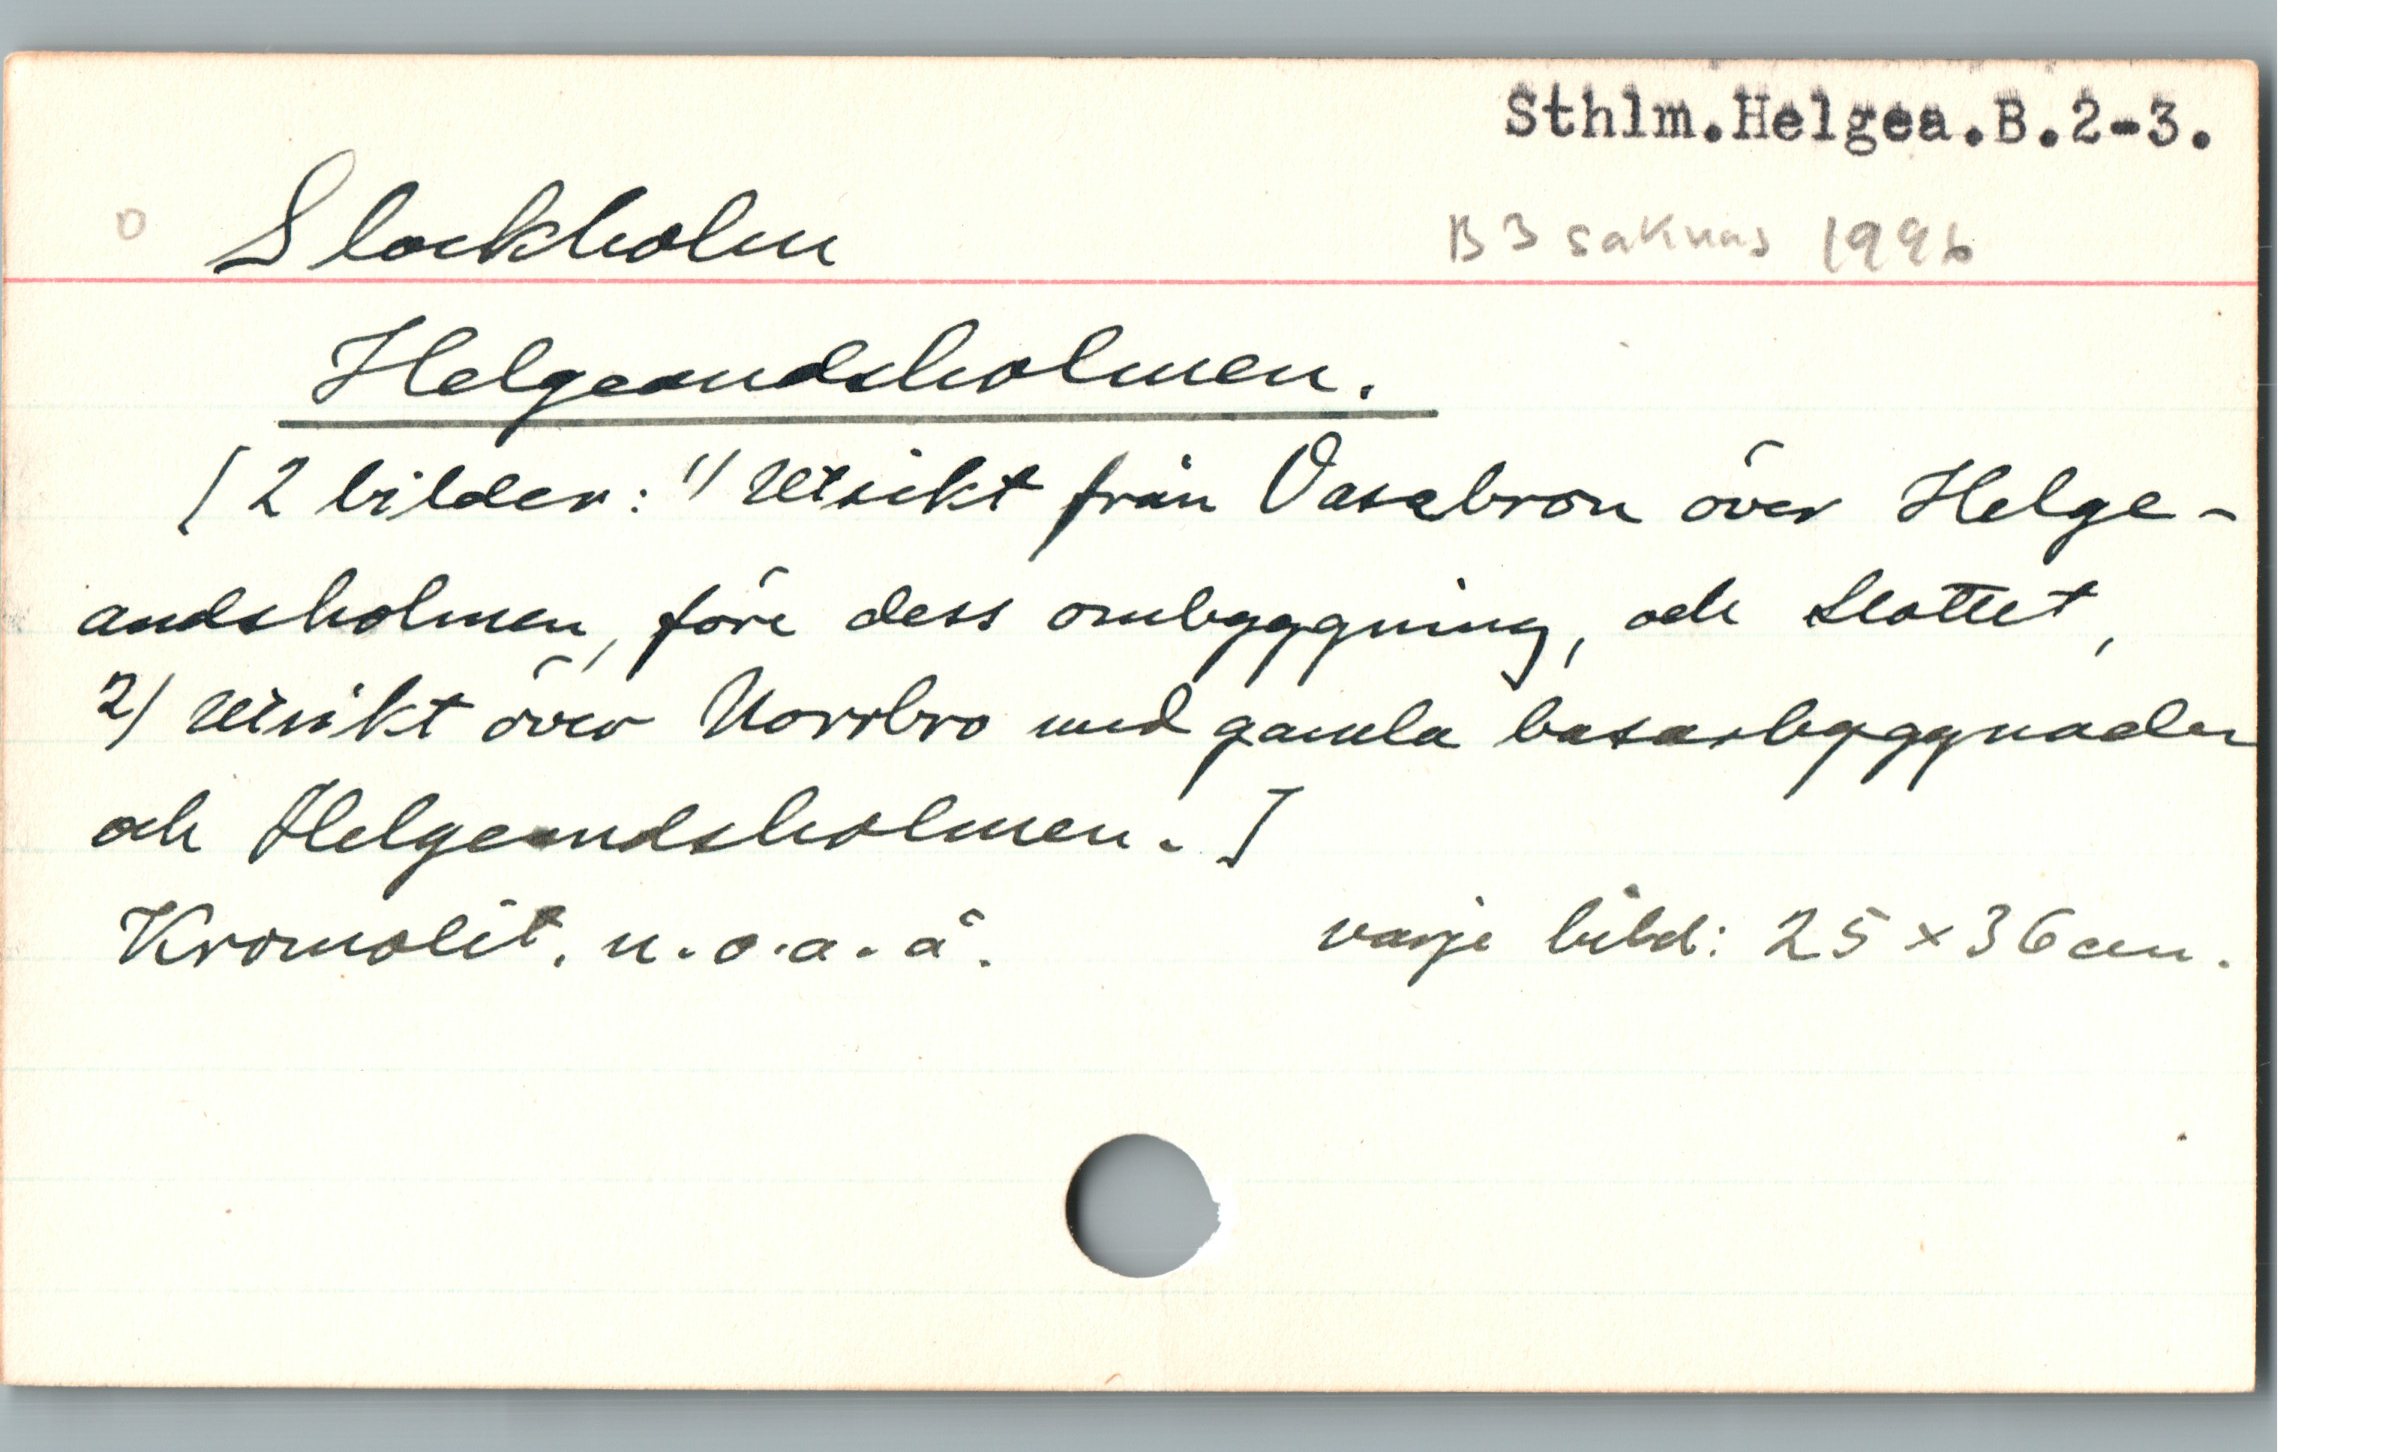 Sthlm.Helgea.B.2-3.
o Stockholm
B3 saknas 1996
Helgeandsholmen.
[2 bilder: 1/ Utsikt från Vasabron över Helge-
andsholmen, före dess ombyggning, och Slottet,
2/ Utsikt över Norrbro med gamla basarbyggnader
och Helgeandsholmen.]
Kromolit. u.o.a.å. varje bild: 25 x 36 cm.